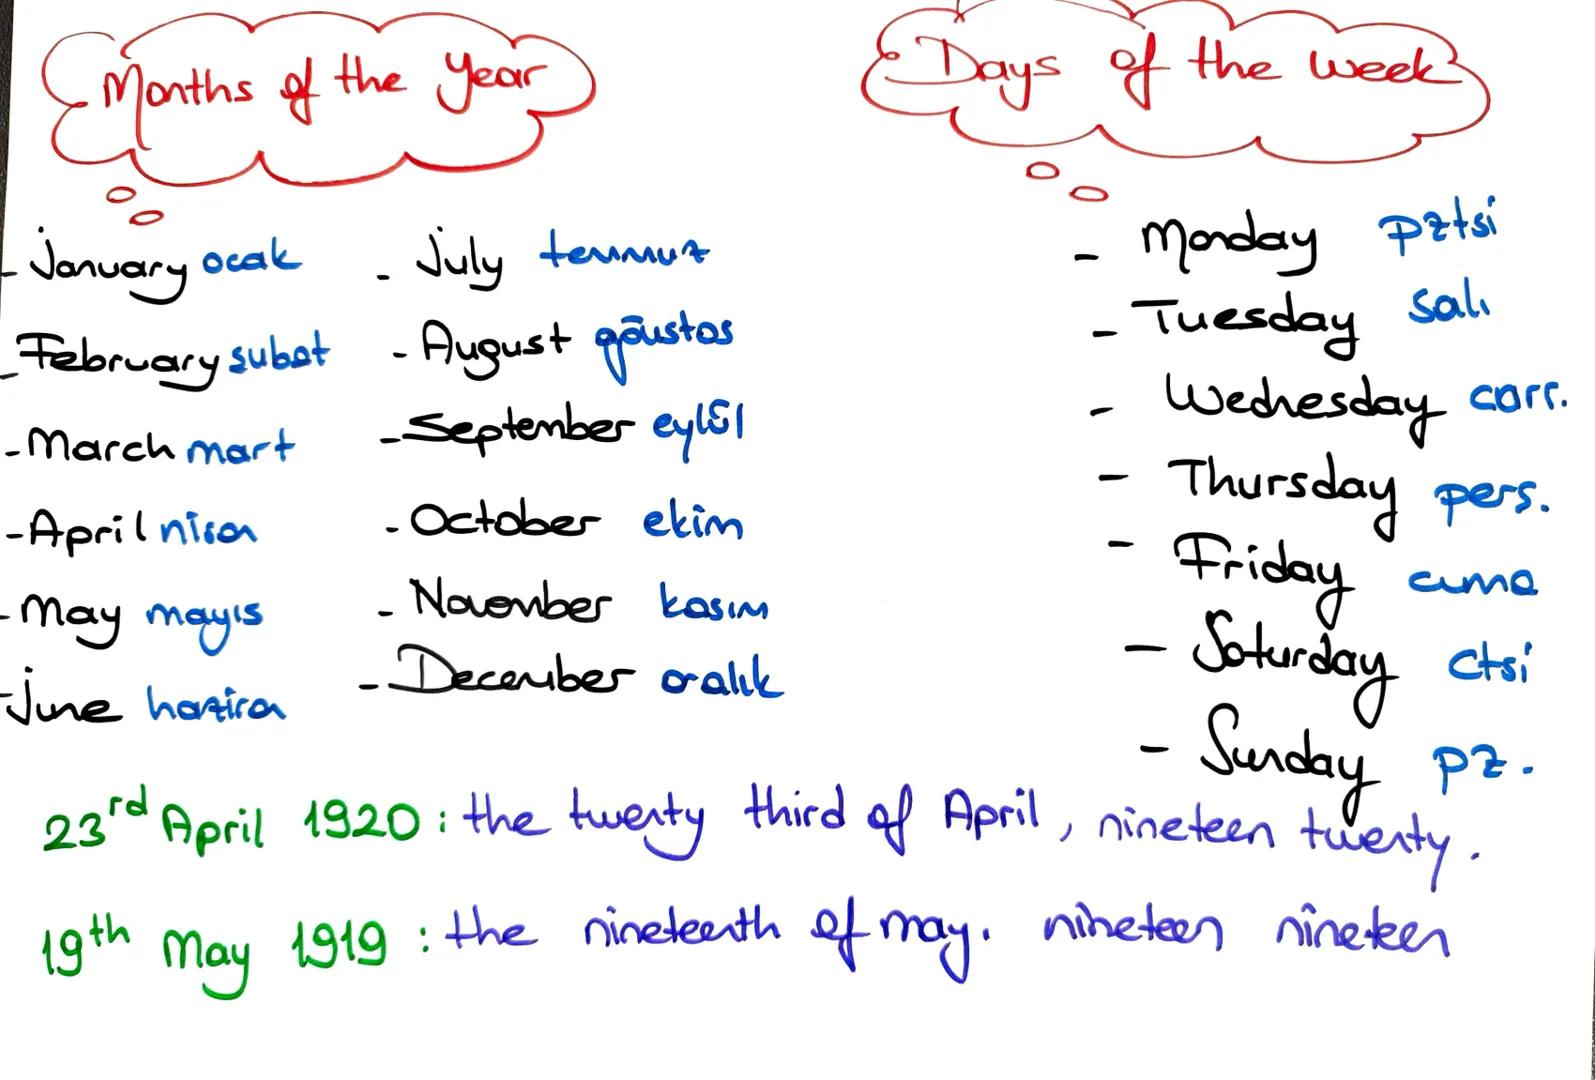 Months of the Year
- January ocak
- February şubat
- March mart
- April nisan
- May mayıs
- June haziran
- July temmuz
- August ağustos
- September eylül
- October ekim
- November kasım
- December aralık
Days of the week
- Monday pztsi
- Tuesday salı
- Wednesday çarş.
- Thursday perş.
- Friday cuma
- Saturday ctsi
- Sunday pz.
23rd April 1920 : the twenty third of April, nineteen twenty.
19th May 1919 : the nineteenth of may. nineteen nineteen